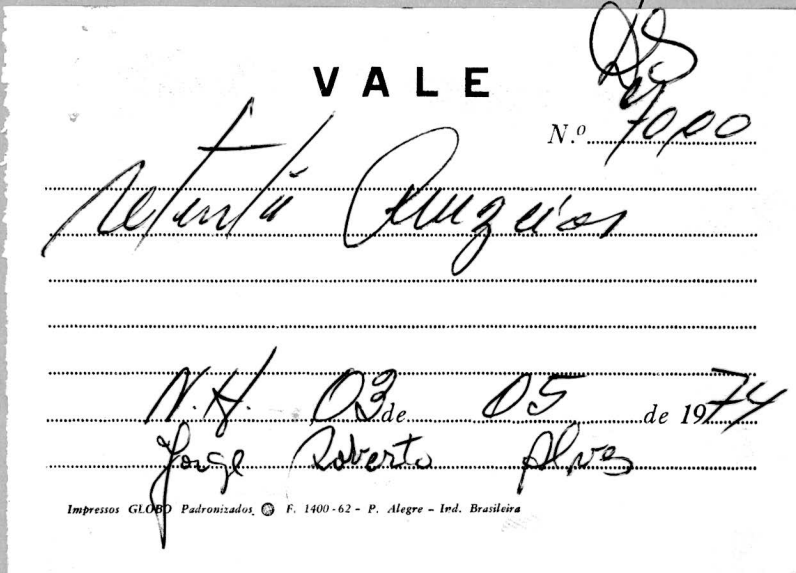 VALE
N.º 70,00
setenta Cruzeiros
N.H. 03 de 05 de 1974
Jorge Roberto Alves
Impressos GLOBO Padronizados F. 1400-62 - P. Alegre - Ind. Brasileira